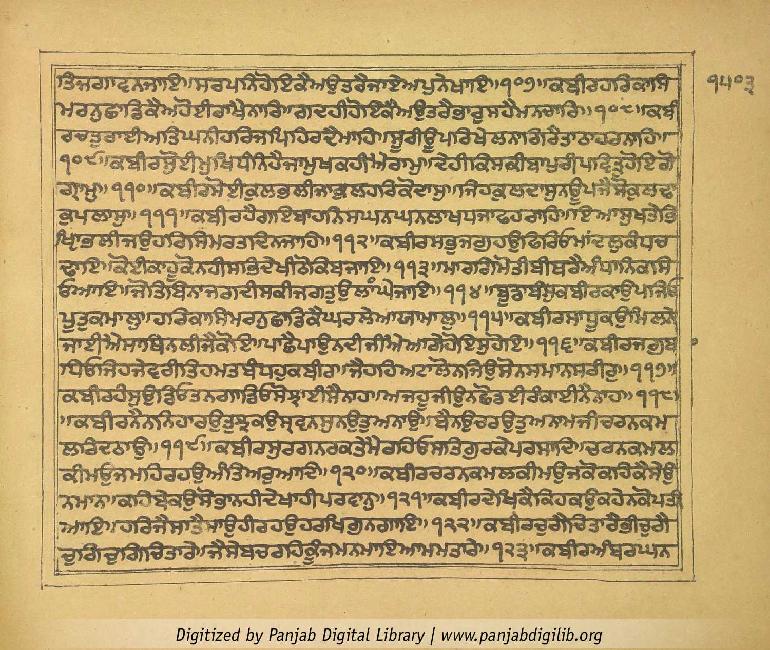 ਤਿਜਗਾਵਨਜਾਇ॥ਸਰਪਨਿਹੋਇਕੈਅਉਤਰੈਜਾਏਅਪੁਨੇਖਾਇ॥੧੦੭॥ਕਬੀਰਹਰਿਕਾਸਿ
ਮਰਨੁਛਾਡਿਕੈਅਹੋਈਰਾਖੈਨਾਰਿ॥ਗਦਹੀਹੋਇਕੈਅਉਤਰੈਭਾਰੁਸਹੈਮਨਚਾਰਿ॥੧੦੮॥ਕਬੀ
ਰਚਤੁਰਾਈਅਤਿਘਨੀਹਰਿਜਪਿਹਿਰਦੈਮਾਹਿ॥ਸੂਰੀਊਪਰਿਖੇਲਨਾਗਿਰੈਤਾਠਾਹਰਨਾਹਿ॥
੧੦੯॥ਕਬੀਰਸੋੁਈਮੁਖਿਧੰਨਿਹੈਜਾਮੁਖਕਹੀਐਰਾਮੁ॥ਦੇਹੀਕਿਸਕੀਬਾਪੁਰੀਪਵਿਤ੍ਰੁਹੋਇਗੋ
ਗ੍ਰਾਮੁ॥੧੧੦॥ਕਬੀਰਸੋਈਕੁਲਭਲੀਜਾਕੁਲਹਰਿਕੋਦਾਸੁ॥ਜਿਹਕੁਲਦਾਸੁਨਊਪਜੈਸੋਕੁਲਢਾ
ਕੁਪਲਾਸੁ॥੧੧੧॥ਕਬੀਰਹੈਗਇਬਾਹਨਿਸਘਨਘਨਲਾਖਧਜਾਫਹਰਾਹਿ॥ਇਆਸੁਖਤੇਭਿ
ਖ੍ਯਾਭਲੀਜਉਹਰਿਸਿਮਰਤਦਿਨਜਾਹਿ॥੧੧੨॥ਕਬੀਰਸਭੁਜਗੁਹਉਫਿਰਿਓਮਾਂਦਲੁਕੰਧਚ
ਢਾਇ॥ਕੋਈਕਾਹੂਕੋਨਹੀਸਭਦੇਖੀਠੋਕਿਬਜਾਇ॥੧੧੩॥ਮਾਰਗਿਮੋਤੀਬੀਥਰੇਅੰਧਾਨਿਕਸਿ
ਓਆਇ॥ਜੋਤਿਬਿਨਾਜਗਦੀਸਕੀਜਗਤੁਉਲੰਘੇਜਾਇ॥੧੧੪॥ਬੂਡਾਬੰਸੁਕਬੀਰਕਾਉਪਜਿਓ
ਪੂਤੁਕਮਾਲੁ॥ਹਰਿਕਾਸਿਮਰਨੁਛਾਡਿਕੈਘਰਲੇਆਯਾਮਾਲੁ॥੧੧੫॥ਕਬੀਰਸਾਧੂਕਉਮਿਲਨੇ
ਜਾਈਐਸਾਥਿਨਲੀਜੈਕੋਇ॥ਪਾਛੈਪਾਉਨਦੀਜੀਐਆਗੈਹੋਇਸੁਹੋਇ॥੧੧੬॥ਕਬੀਰਜਗੁਬ
ਧਿਓਜਿਹਜੇਵਰੀਤਿਹਮਤਬੰਧਹੁਕਬੀਰ॥ਜੈਹਹਿਆਟਾਲੋਨਜਿਉਸੋਨਸਮਾਨਸਰੀਰੁ॥੧੧੭॥
ਕਬੀਰਹੰਸੁਉਡਿਓਤਨੁਗਾਡਿਓਸੋਝਾਈਸੈਨਾਹ॥ਅਜਹੂਜੀਉਨਛੋਡਈਰੰਕਾਈਨੈਨਾਹ॥੧੧੮
॥ਕਬੀਰਨੈਨਨਿਹਾਰਉਤੁਝਕਉਸ੍ਰਵਨਸੁਨਉਤੁਅਨਾਉ॥ਬੈਨਉਚਰਉਤੁਅਨਾਮਜੀਚਰਨਕਮ
ਲਰਿਦਠਾਉ॥੧੧੯॥ਕਬੀਰਸੁਰਗਨਰਕਤੇਮੈਰਹਿਓਸਤਿਗੁਰਕੇਪਰਸਾਦਿ॥ਚਰਨਕਮਲ
ਕੀਮਉਜਮਹਿਰਹਉਅੰਤਿਅਰੁਆਦਿ॥੧੨੦॥ਕਬੀਰਚਰਨਕਮਲਕੀਮਉਜਕੋਕਹਿਕੈਸੇਉ
ਨਮਾਨ॥ਕਹਿਬੇਕਉਸੋਭਾਨਹੀਦੇਖਾਹੀਪਰਵਾਨੁ॥੧੨੧॥ਕਬੀਰਦੇਖਿਕੈਕਿਹਕਹਉਕਹੇਨਕੋਪਤੀ
ਆਇ॥ਹਰਿਜੈਸਾਤੈਸਾਉਹੀਰਹਉਹਰਖਿਗੁਨਗਾਇ॥੧੨੨॥ਕਬੀਰਚੁਗੈਚਿਤਾਰੈਭੀਚੁਗੈ
ਚੁਗਿਚੁਗਿਚਿਤਾਰੇ॥ਜੈਸੇਬਚਰਹਿਕੂੰਜਮਨਮਾਇਆਮਮਤਾਰੇ॥੧੨੩॥ਕਬੀਰਅੰਬਰਘਨ
੧੫੦੩
Digitized by Panjab Digital Library | www.panjabdigilib.org